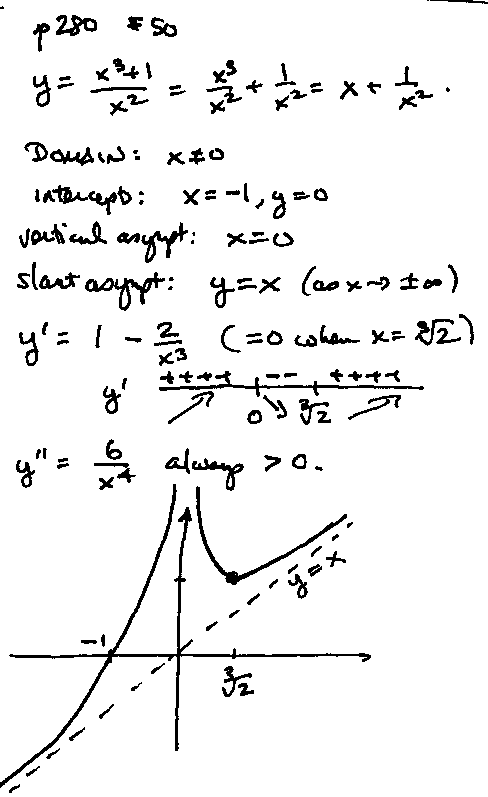 p280 #50
y = x³+1/x² = x³/x² + 1/x² = x + 1/x².
DOMAIN: x≠0
intercepts: x=-1, y=0
vertical asympt: x=0
slant asympt: y=x (as x→±∞)
y' = 1 - 2/x³ (=0 when x=∛2)
++++ -- ++++
y' 0 ∛2
y'' = 6/x⁴ always > 0.
y=x
-1
∛2